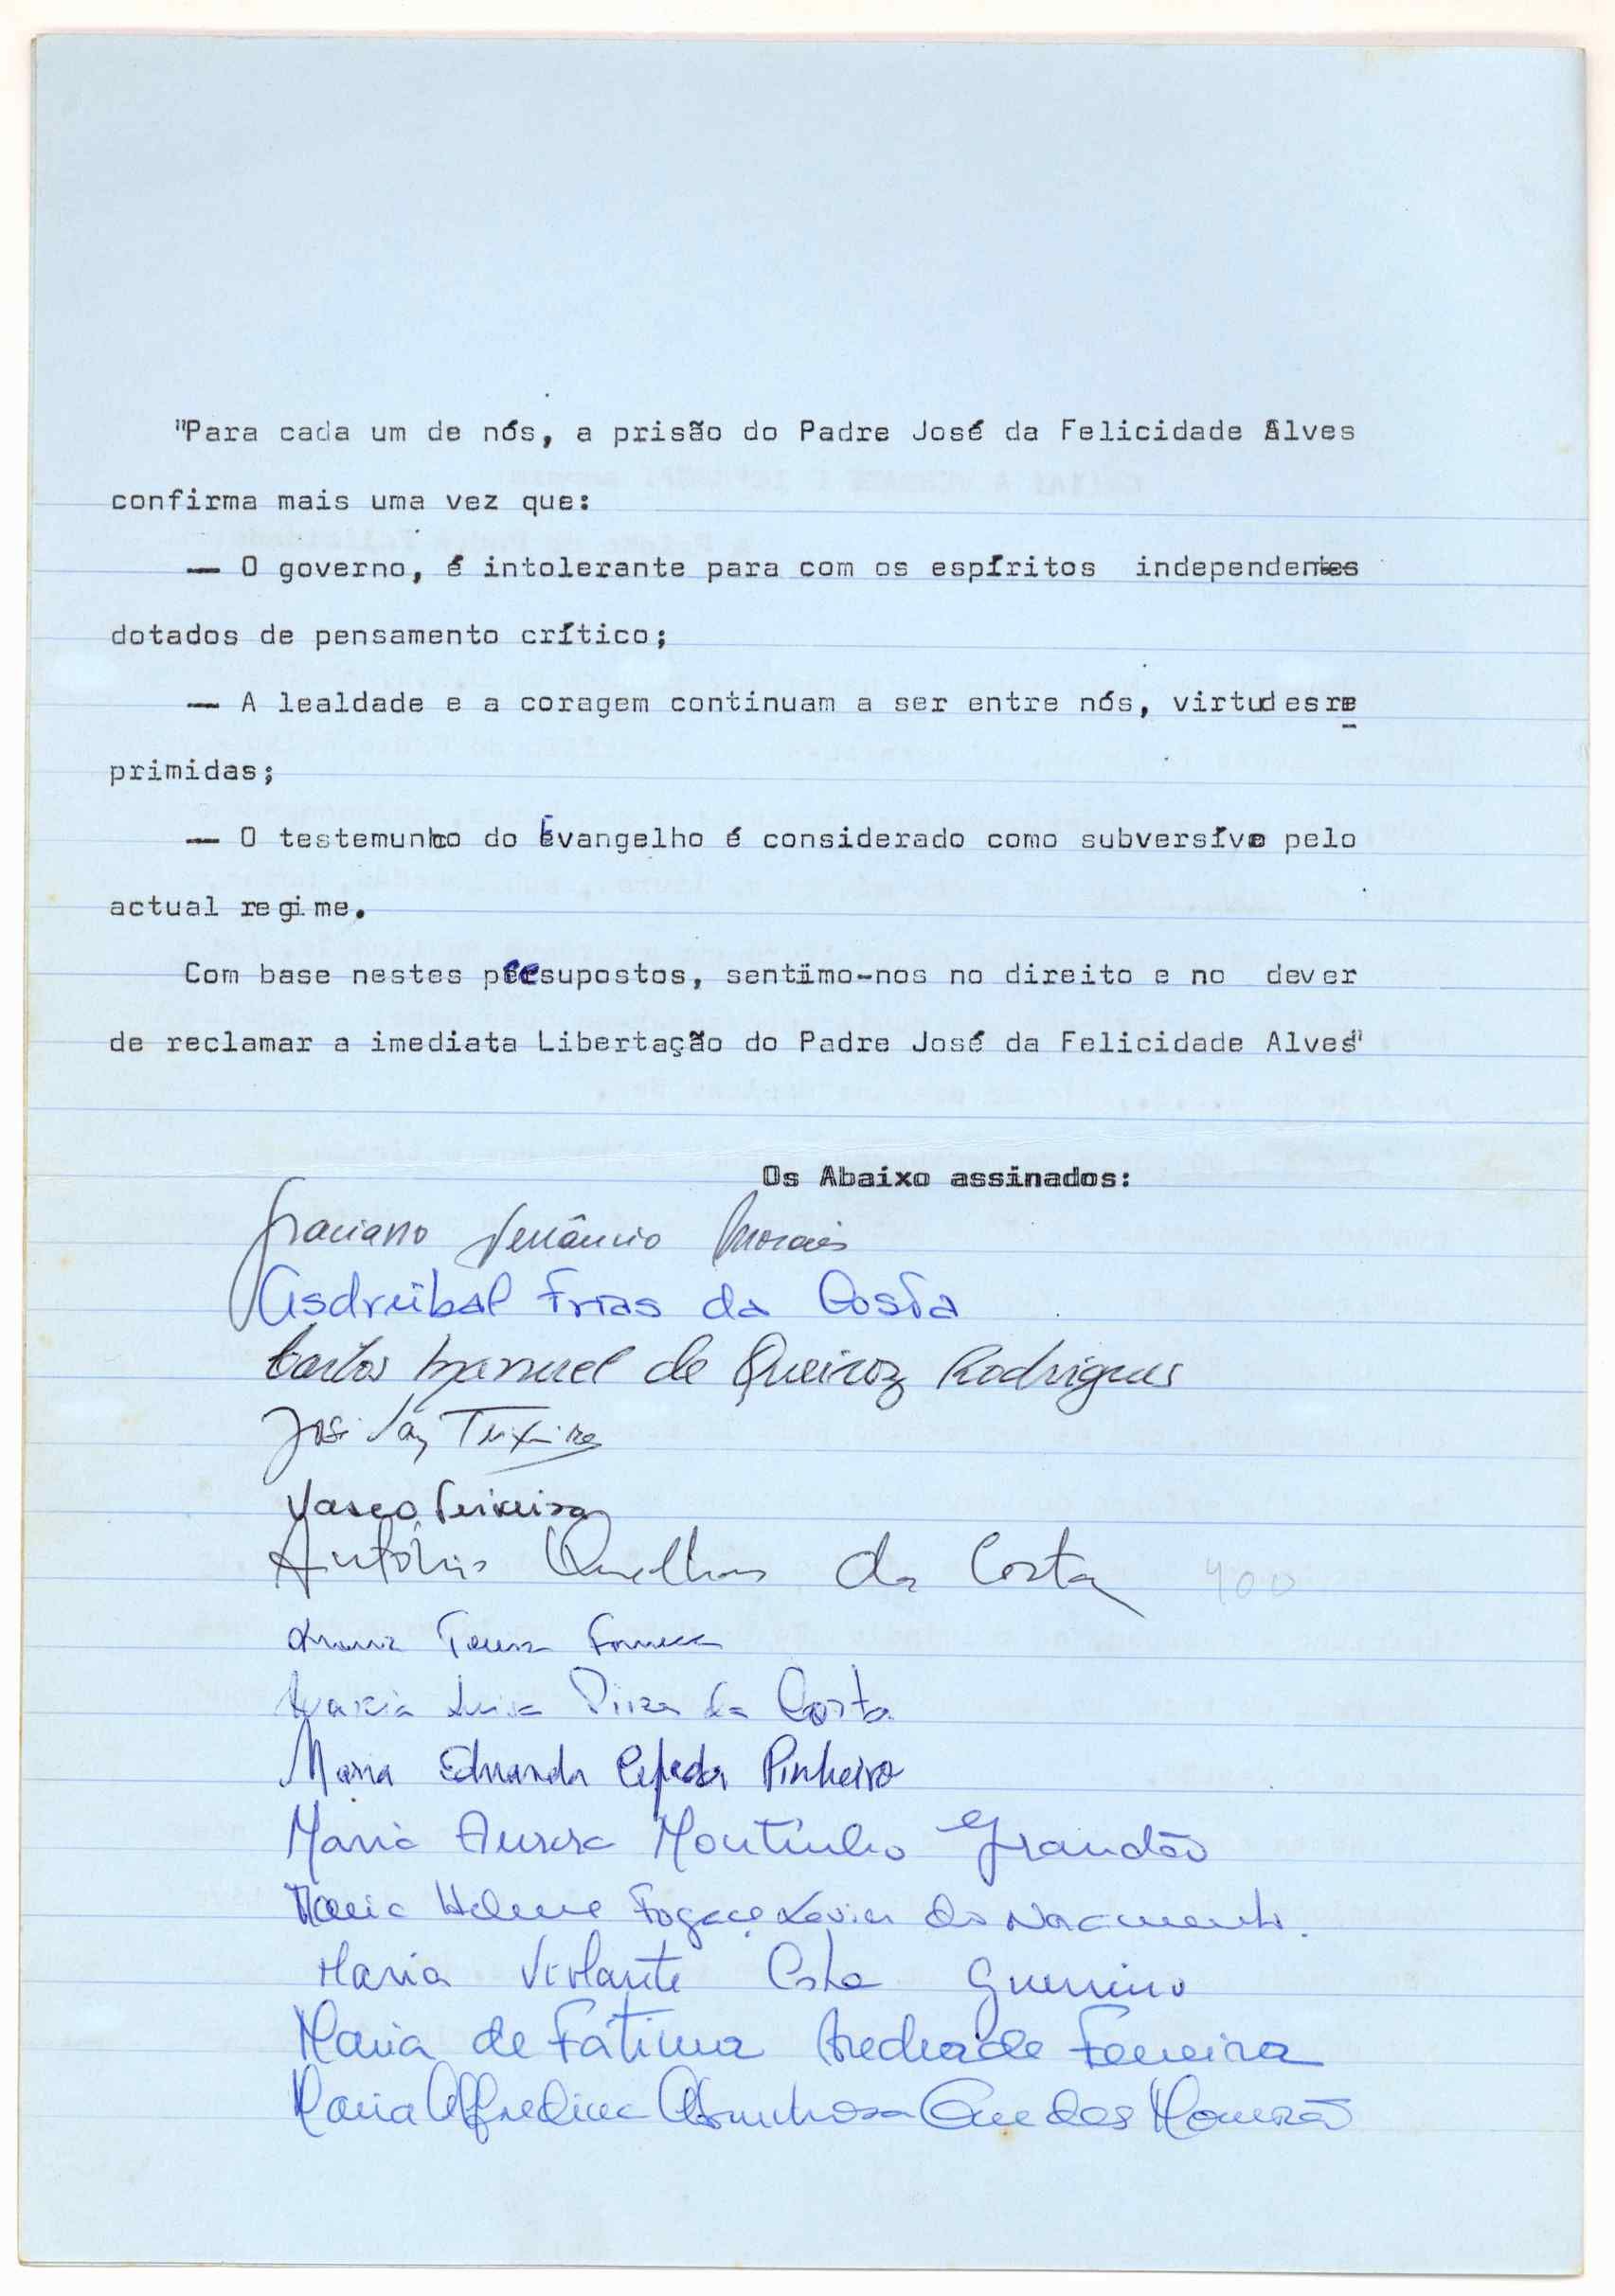 "Para cada um de nós, a prisão do Padre José da Felicidade Alves
confirma mais uma vez que:
— O governo, é intolerante para com os espíritos independentes
dotados de pensamento crítico;
— A lealdade e a coragem continuam a ser entre nós, virtudes re
primidas;
— O testemunho do Evangelho é considerado como subversívo pelo
actual regime.
Com base nestes pressupostos, sentimo-nos no direito e no dever
de reclamar a imediata Libertação do Padre José da Felicidade Alves"
Os Abaixo assinados:
Graciano Venâncio Morais
Asdrúbal Frias da Costa
Carlos Manuel de Queiroz Rodrigues
José Teixeira
Vasco Teixeira
António Quelhas da Costa 400
Teresa Fonseca
Maria Luisa da Costa
Maria Eduarda Cepeda Pinheiro
Maria Aurora Moutinho Grandão
Maria Helena Fogaça Xavier do Nascimento.
Maria Violante Costa Guerreiro
Maria de Fátima Andrade Ferreira
Maria Alfredina Guedes Mourão